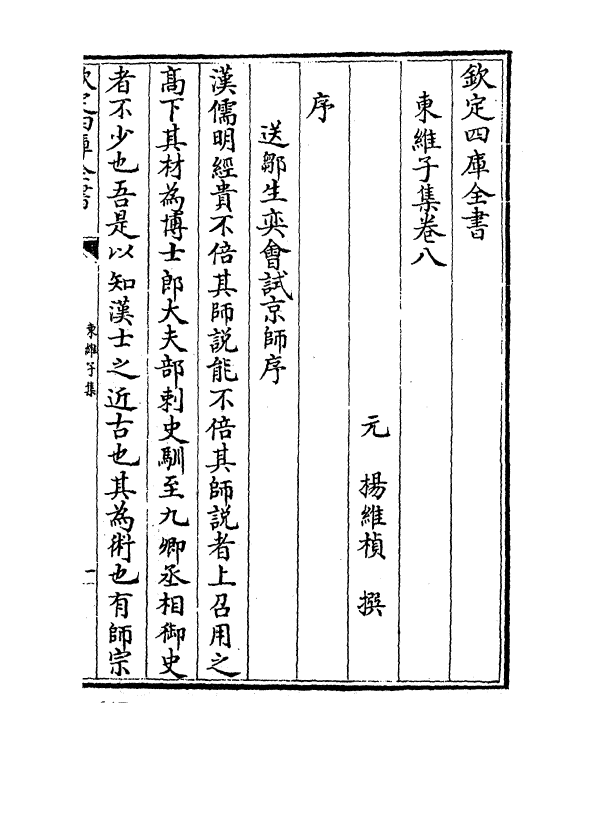 欽定四庫全書
東維子集卷八
元　楊維楨　撰
序
送鄒生奕會試京師序
漢儒明經貴不倍其師説能不倍其師説者上召用之
高下其材為博士郎大夫部刺史馴至九卿丞相御史
者不少也吾是以知漢士之近古也其為術也有師宗
欽定四庫全書
東維子集
一